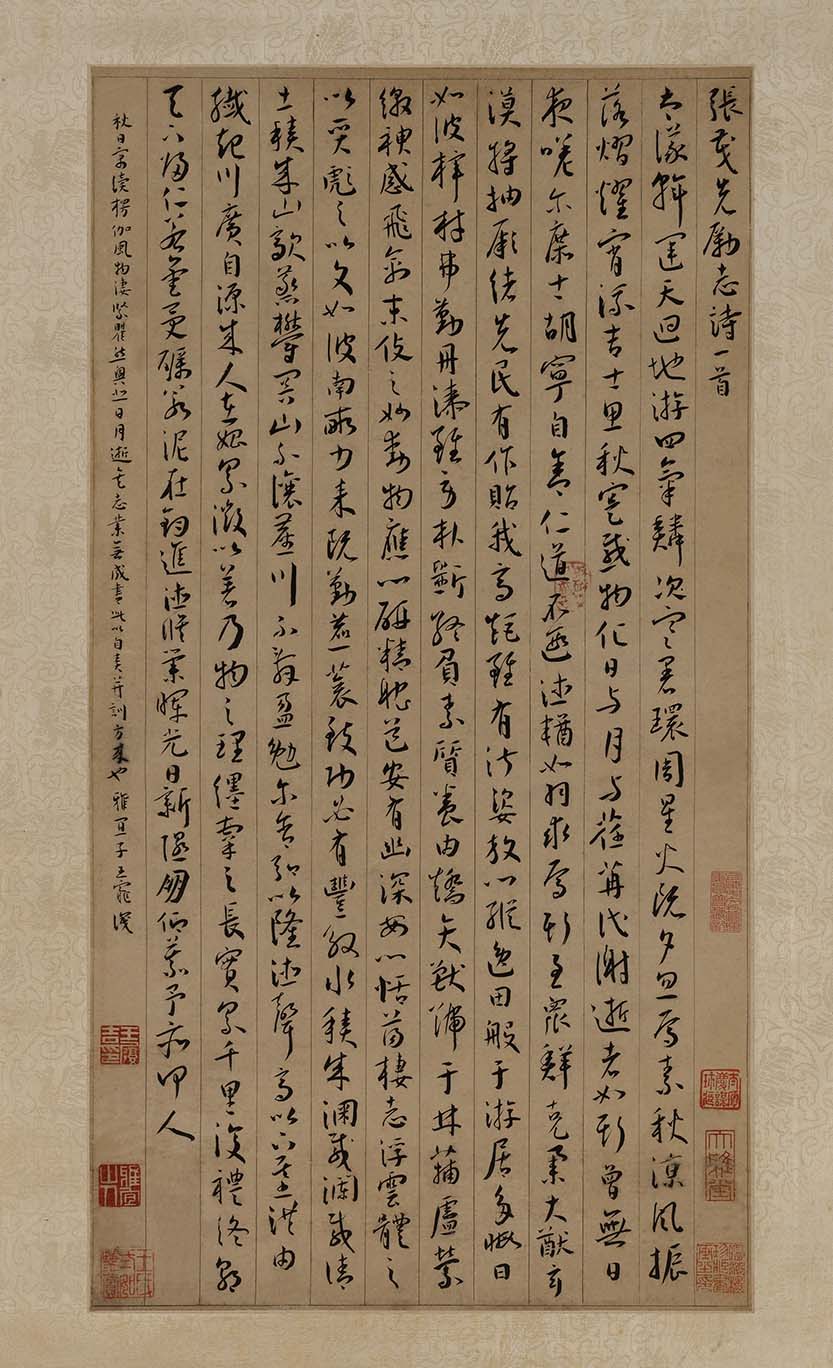 張茂先勵志詩一首
大儀斡運天迴地游四氣鱗次寒暑環周星火既夕忽焉素秋涼風振
落熠燿宵流吉士思秋寔感物化日与月与荏苒代謝逝者如斯曾無日
夜嗟尔庶士胡寧自舍仁道不遐德輶如羽求焉斯至眾鮮克舉大猷玄
漠將抽厥緒先民有作貽我高矩雖有淑姿放心縱逸田般于游居多暇日
如彼梓材弗勤丹漆雖勞朴斲終負素質養由矯矢獸號于林蒲盧縈
繳神感飛禽末伎之妙動物應心研精耽道安有幽深安心恬蕩棲志浮雲體之
以質彪之以文如彼南畝力耒既勤藨蓘致功必有豐殷水積成瀾載瀾載清
土積成山歊蒸鬱冥山不讓塵川不辭盈勉尔含弘以隆德聲高以下基洪由
纖起川廣自源成人在始累微以著乃物之理纆牽之長實累千里復禮終朝
天下歸仁若金受礪若泥在鈞進德脩業暉光日新隰朋仰慕予亦何人
秋日宴讀楞伽風物淒緊瞿然興悲日月逝矣志業無成書此以自責并訓方來也 雅宜子王寵識
大雅堂
王履吉印
雅宜山人